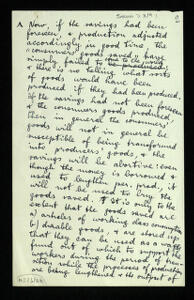 A. Now, if the savings had been
foreseen & production adjusted
accordingly in good time, the
consumers' goods saved have
simply failed to
& there is no telling what sorts
of goods would have been
produced if they had been produced.
If the savings had not been foreseen
& the consumers goods produced,
then in general the
goods will not in general be
susceptible of being transformed
into producers' goods, & the
savings will be abortive even
though the money is borrowed &
used to lengthen production, it
will not be used to buy the
goods saved. It is only to the
extent that the goods saved are
a) articles of working class consumption
b) durable goods, & are stored so
that they can be used as a wages
fund out of which to support
workers during the period of
while the processes of production
are being lengthened & the output of